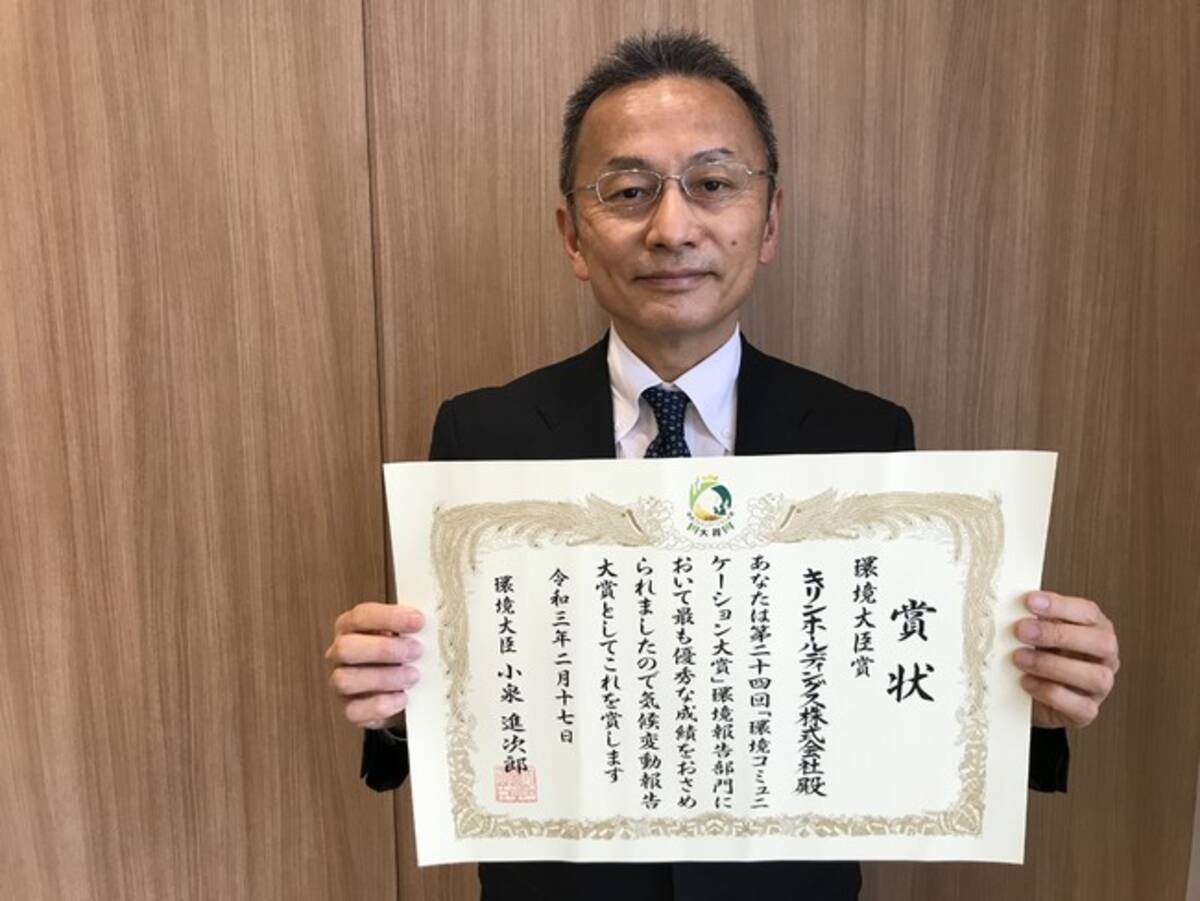 大賞
賞状
環境大臣賞
キリンホールディングス株式会社殿
あなたは第二十四回「環境コミュニ
ケーション大賞」環境報告部門に
おいて最も優秀な成績をおさめ
られましたので気候変動報告
大賞としてこれを賞します
令和三年二月十七日
環境大臣 小泉進次郎